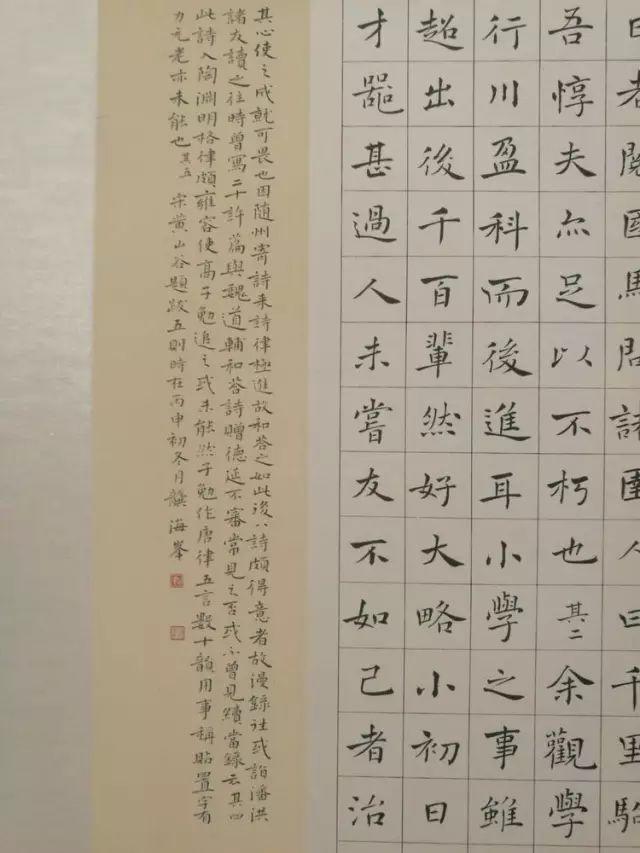 者閱國馬問諸圉人曰千里
吾惇夫亦足以不朽也其二余觀學
行川盈科而後進耳小學之事雖
超出後千百輩然好大略小初日
才器甚過人未嘗友不如己者治
其心使之成就可畏也因隨州寄詩來詩律極進故和答之如此後八詩頗得意者故漫錄往或詣潘洪
諸友讀之往時曾寫二十許篇與魏道輔和答詩贈德延不審常見之否或不曾見續當錄云其四
此詩入陶淵明格律頗雍容使高子勉追之或未能然子勉作唐律五言數十韻用事稱貼置字有
力元老亦未能也其五 宋黃山谷題跋五則時在丙申初冬月龔海峯